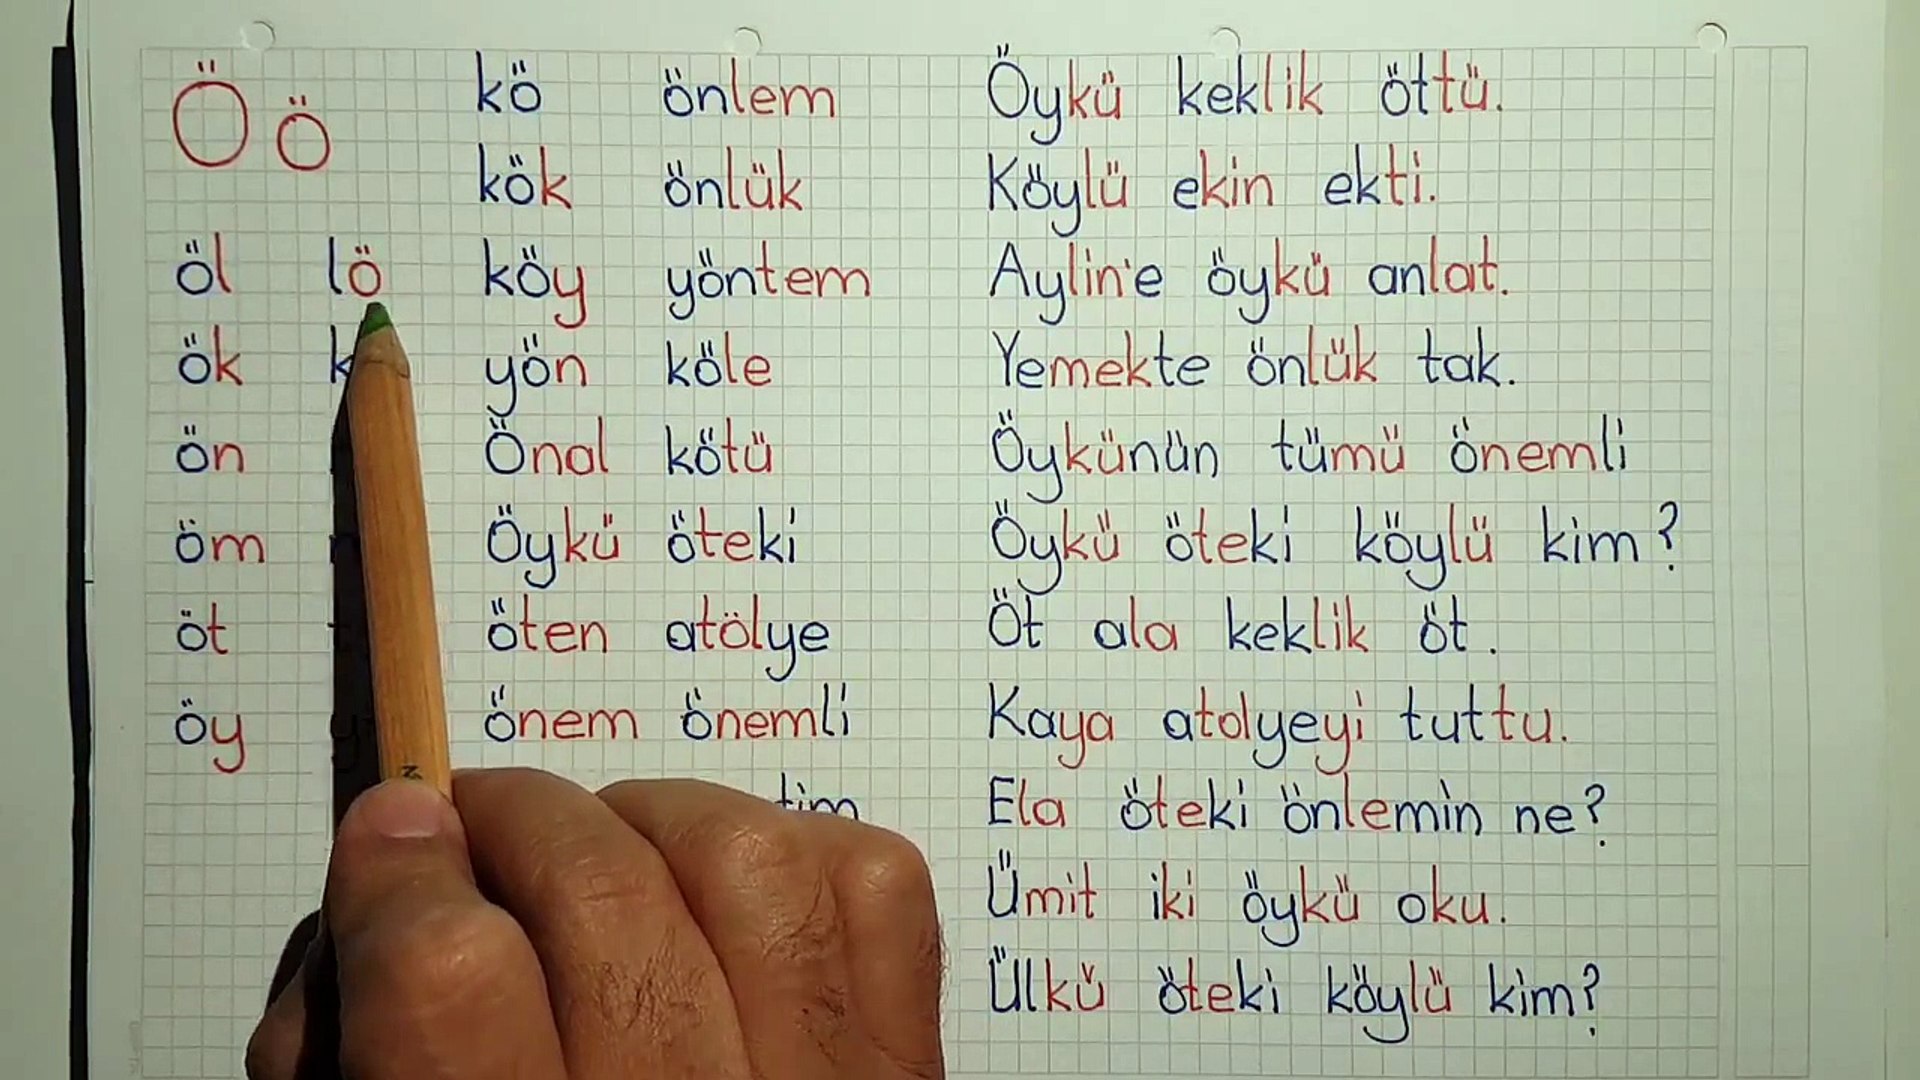 Ö ö
öl lö
ök
ön
öm
öt
öy
kö önlem
kök önlük
köy yöntem
yön köle
Önal kötü
Öykü öteki
öten atölye
önem önemli
Öykü keklik öttü.
Köylü ekin ekti.
Aylin'e öykü anlat.
Yemekte önlük tak.
Öykünün tümü önemli
Öykü öteki köylü kim?
Öt ala keklik öt.
Kaya atolyeyi tuttu.
Ela öteki önlemin ne?
Ümit iki öykü oku.
Ülkü öteki köylü kim?